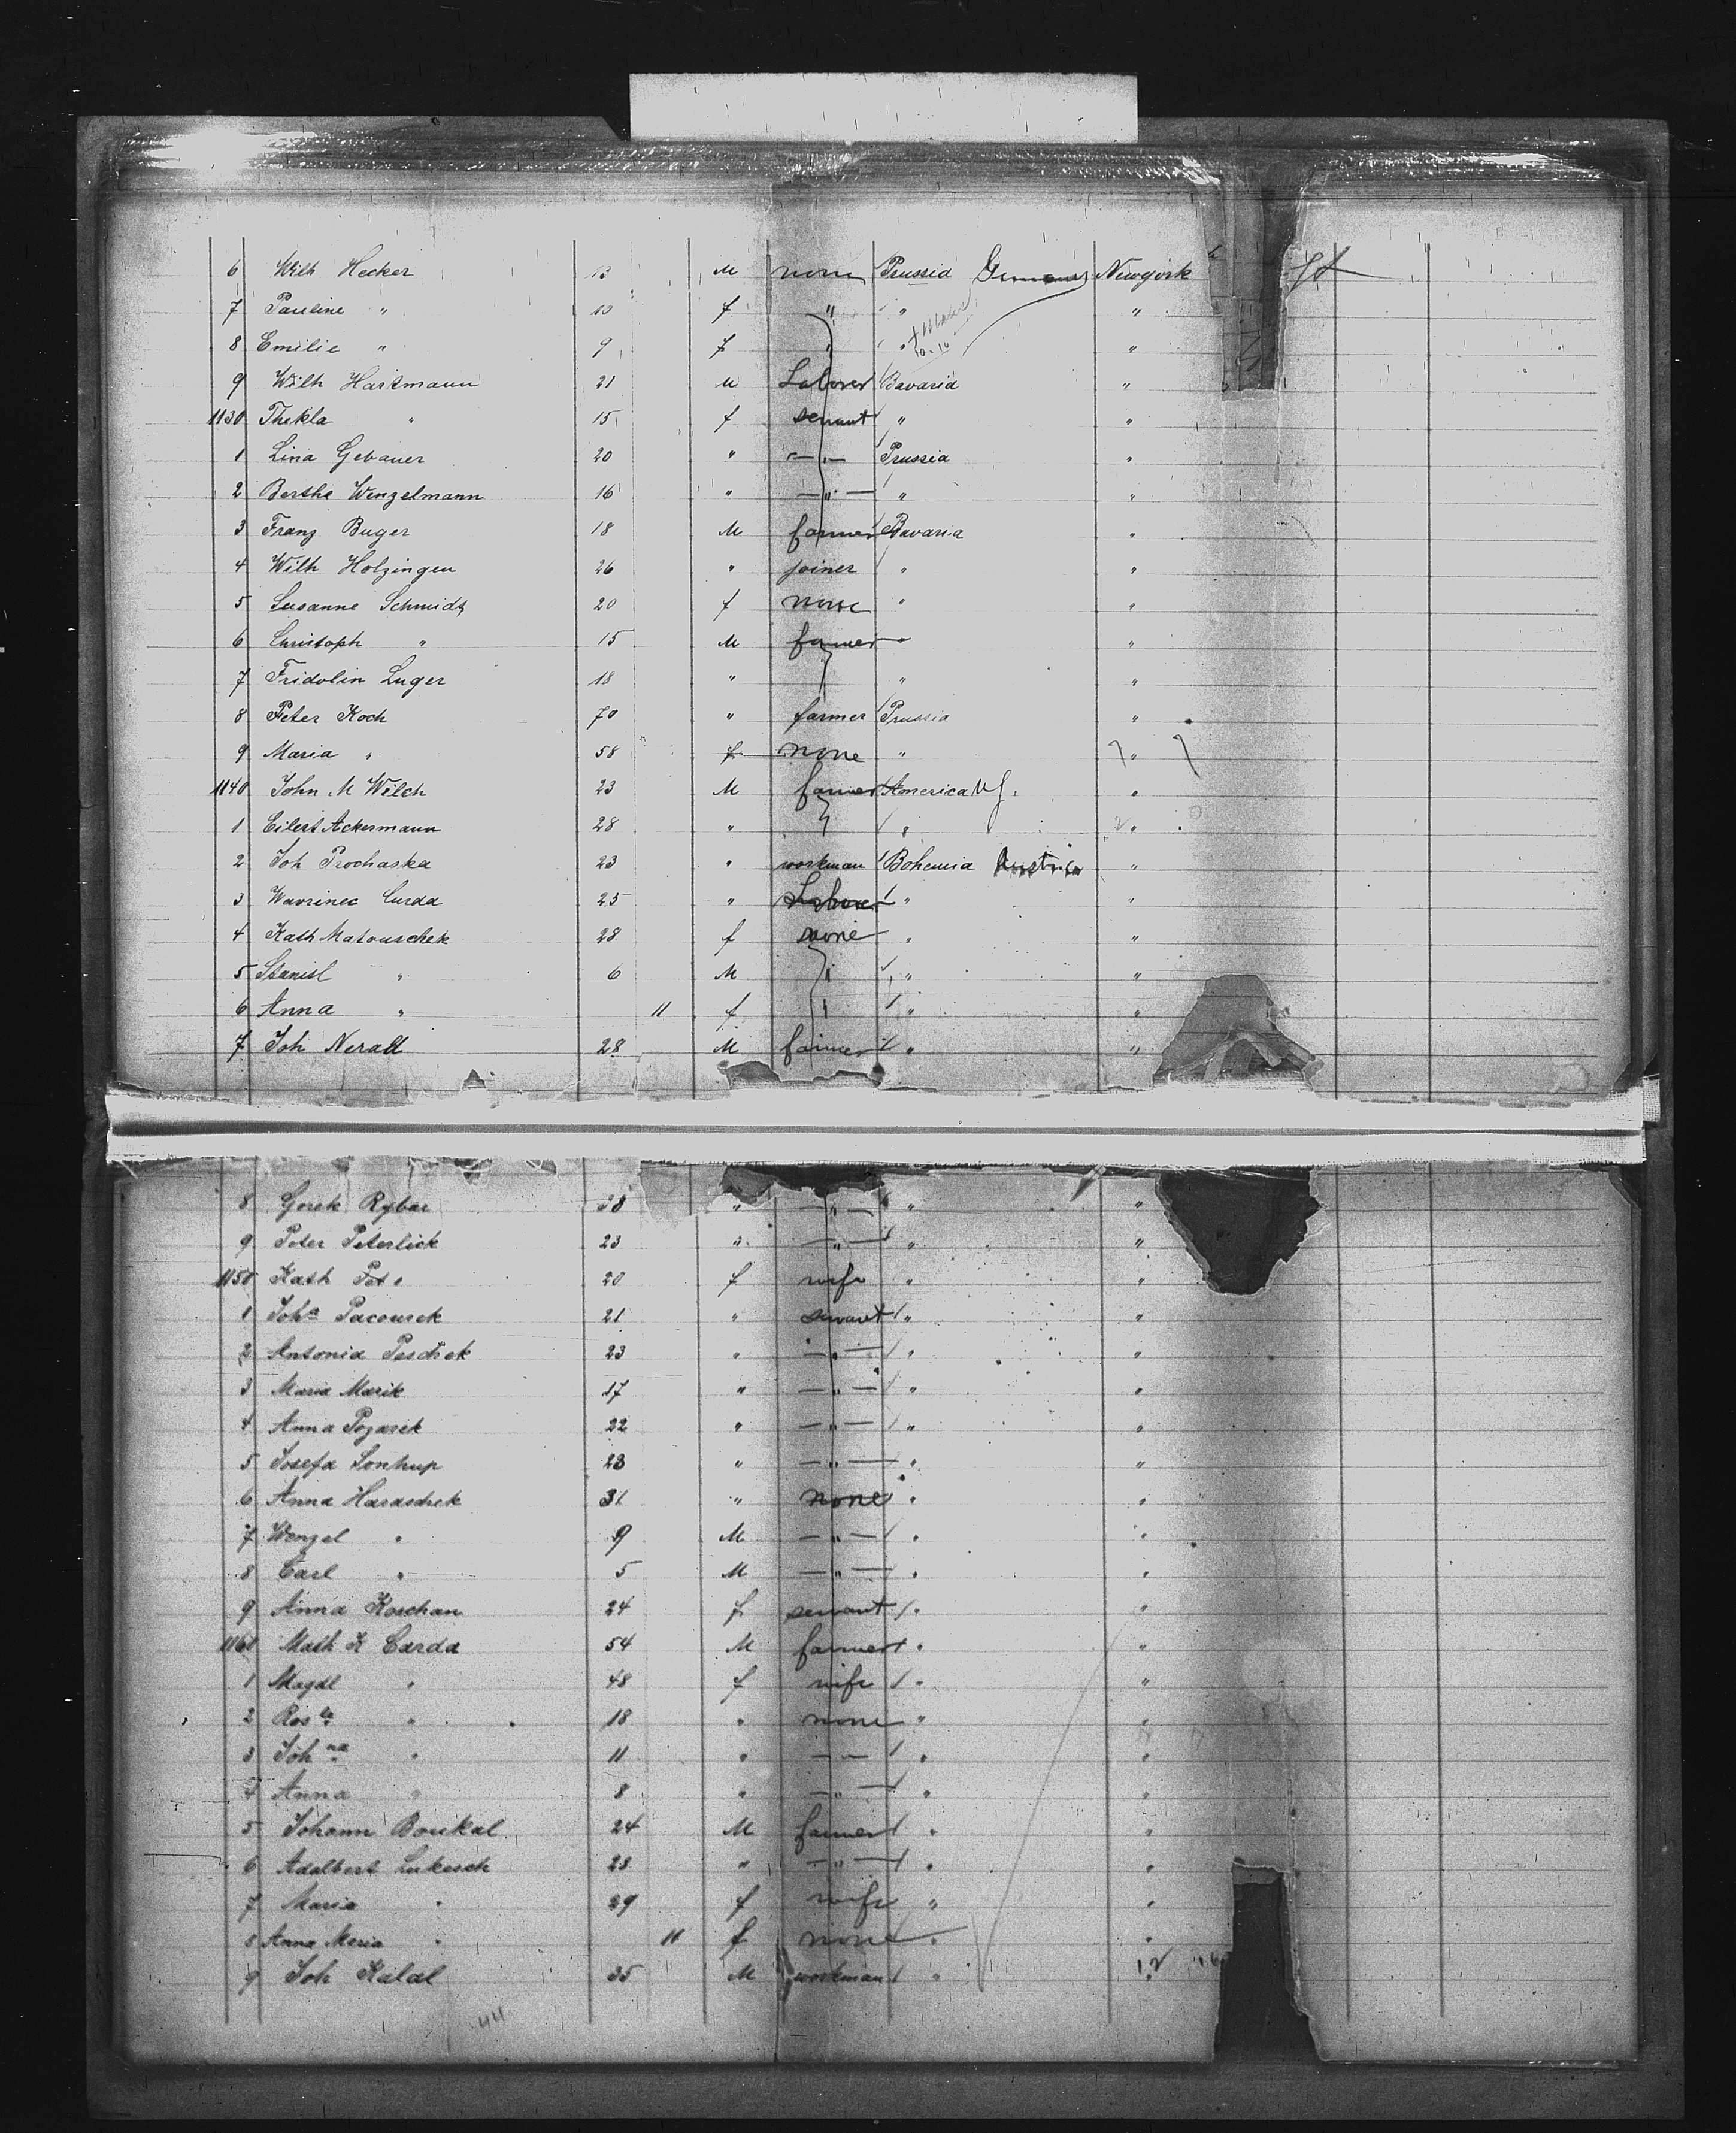 6 Wilh Hecker M none Prussia Germany Newyork
7 Pauline " 10 f " " "
8 Emilie " 9 f " "
9 Wilh Hartmann 21 M Laborer Bavaria "
1130 Thekla " 15 f servant " "
1 Lina Gebauer 20 " — " — Prussia "
2 Berthe Winzelmann 16 " — " — " "
3 Franz Buger 18 M farmer Bavaria "
4 Wilh Holzinger 26 " joiner " "
5 Susanne Schmidt 20 f none " "
6 Christoph " 15 M farmer " "
7 Fridolin Luger 18 " " "
8 Peter Koch 70 " farmer Prussia "
9 Maria " 58 f none " "
1140 John M Wilch 23 M farmer America "
1 Eilert Ackermann 28 " " "
2 Joh Prochaska 23 " workman Bohemia Austria "
3 Wavrinec Curda 25 " Laborer " "
4 Kath Matouschek 28 f none " "
5 Stanisl " 6 M " "
6 Anna " 11 f " "
7 Joh Nerad 28 M farmer " "
8 Rybar " — " — " "
9 Peter Peterlick 23 " — " — " "
1150 Kath Pet. 20 f wife " "
1 Joh^a Pacourek 21 " servant " "
2 Antonia Peschek 23 " — " — " "
3 Maria Marik 17 " — " — " "
4 Anna Pozarek 22 " — " — " "
5 Josefa 23 " — " — " "
6 Anna Haraschek 31 " none " "
7 Wenzel " 9 M — " — " "
8 Carl " 5 M — " — " "
9 Anna Koschan 24 f servant " "
1160 Math K Carda 54 M farmer " "
1 Magdl " 48 f wife " "
2 Ros^la " 18 " none " "
3 Joh^na " 11 " — " — " "
4 Anna " 8 " — " — " "
5 Johann Boukal 24 M farmer " "
6 Adalbert Lukesch 28 " — " — " "
7 Maria " 29 f wife " "
8 Anna Maria " 11 f none " "
9 Joh Kalal 35 M workman " "
44